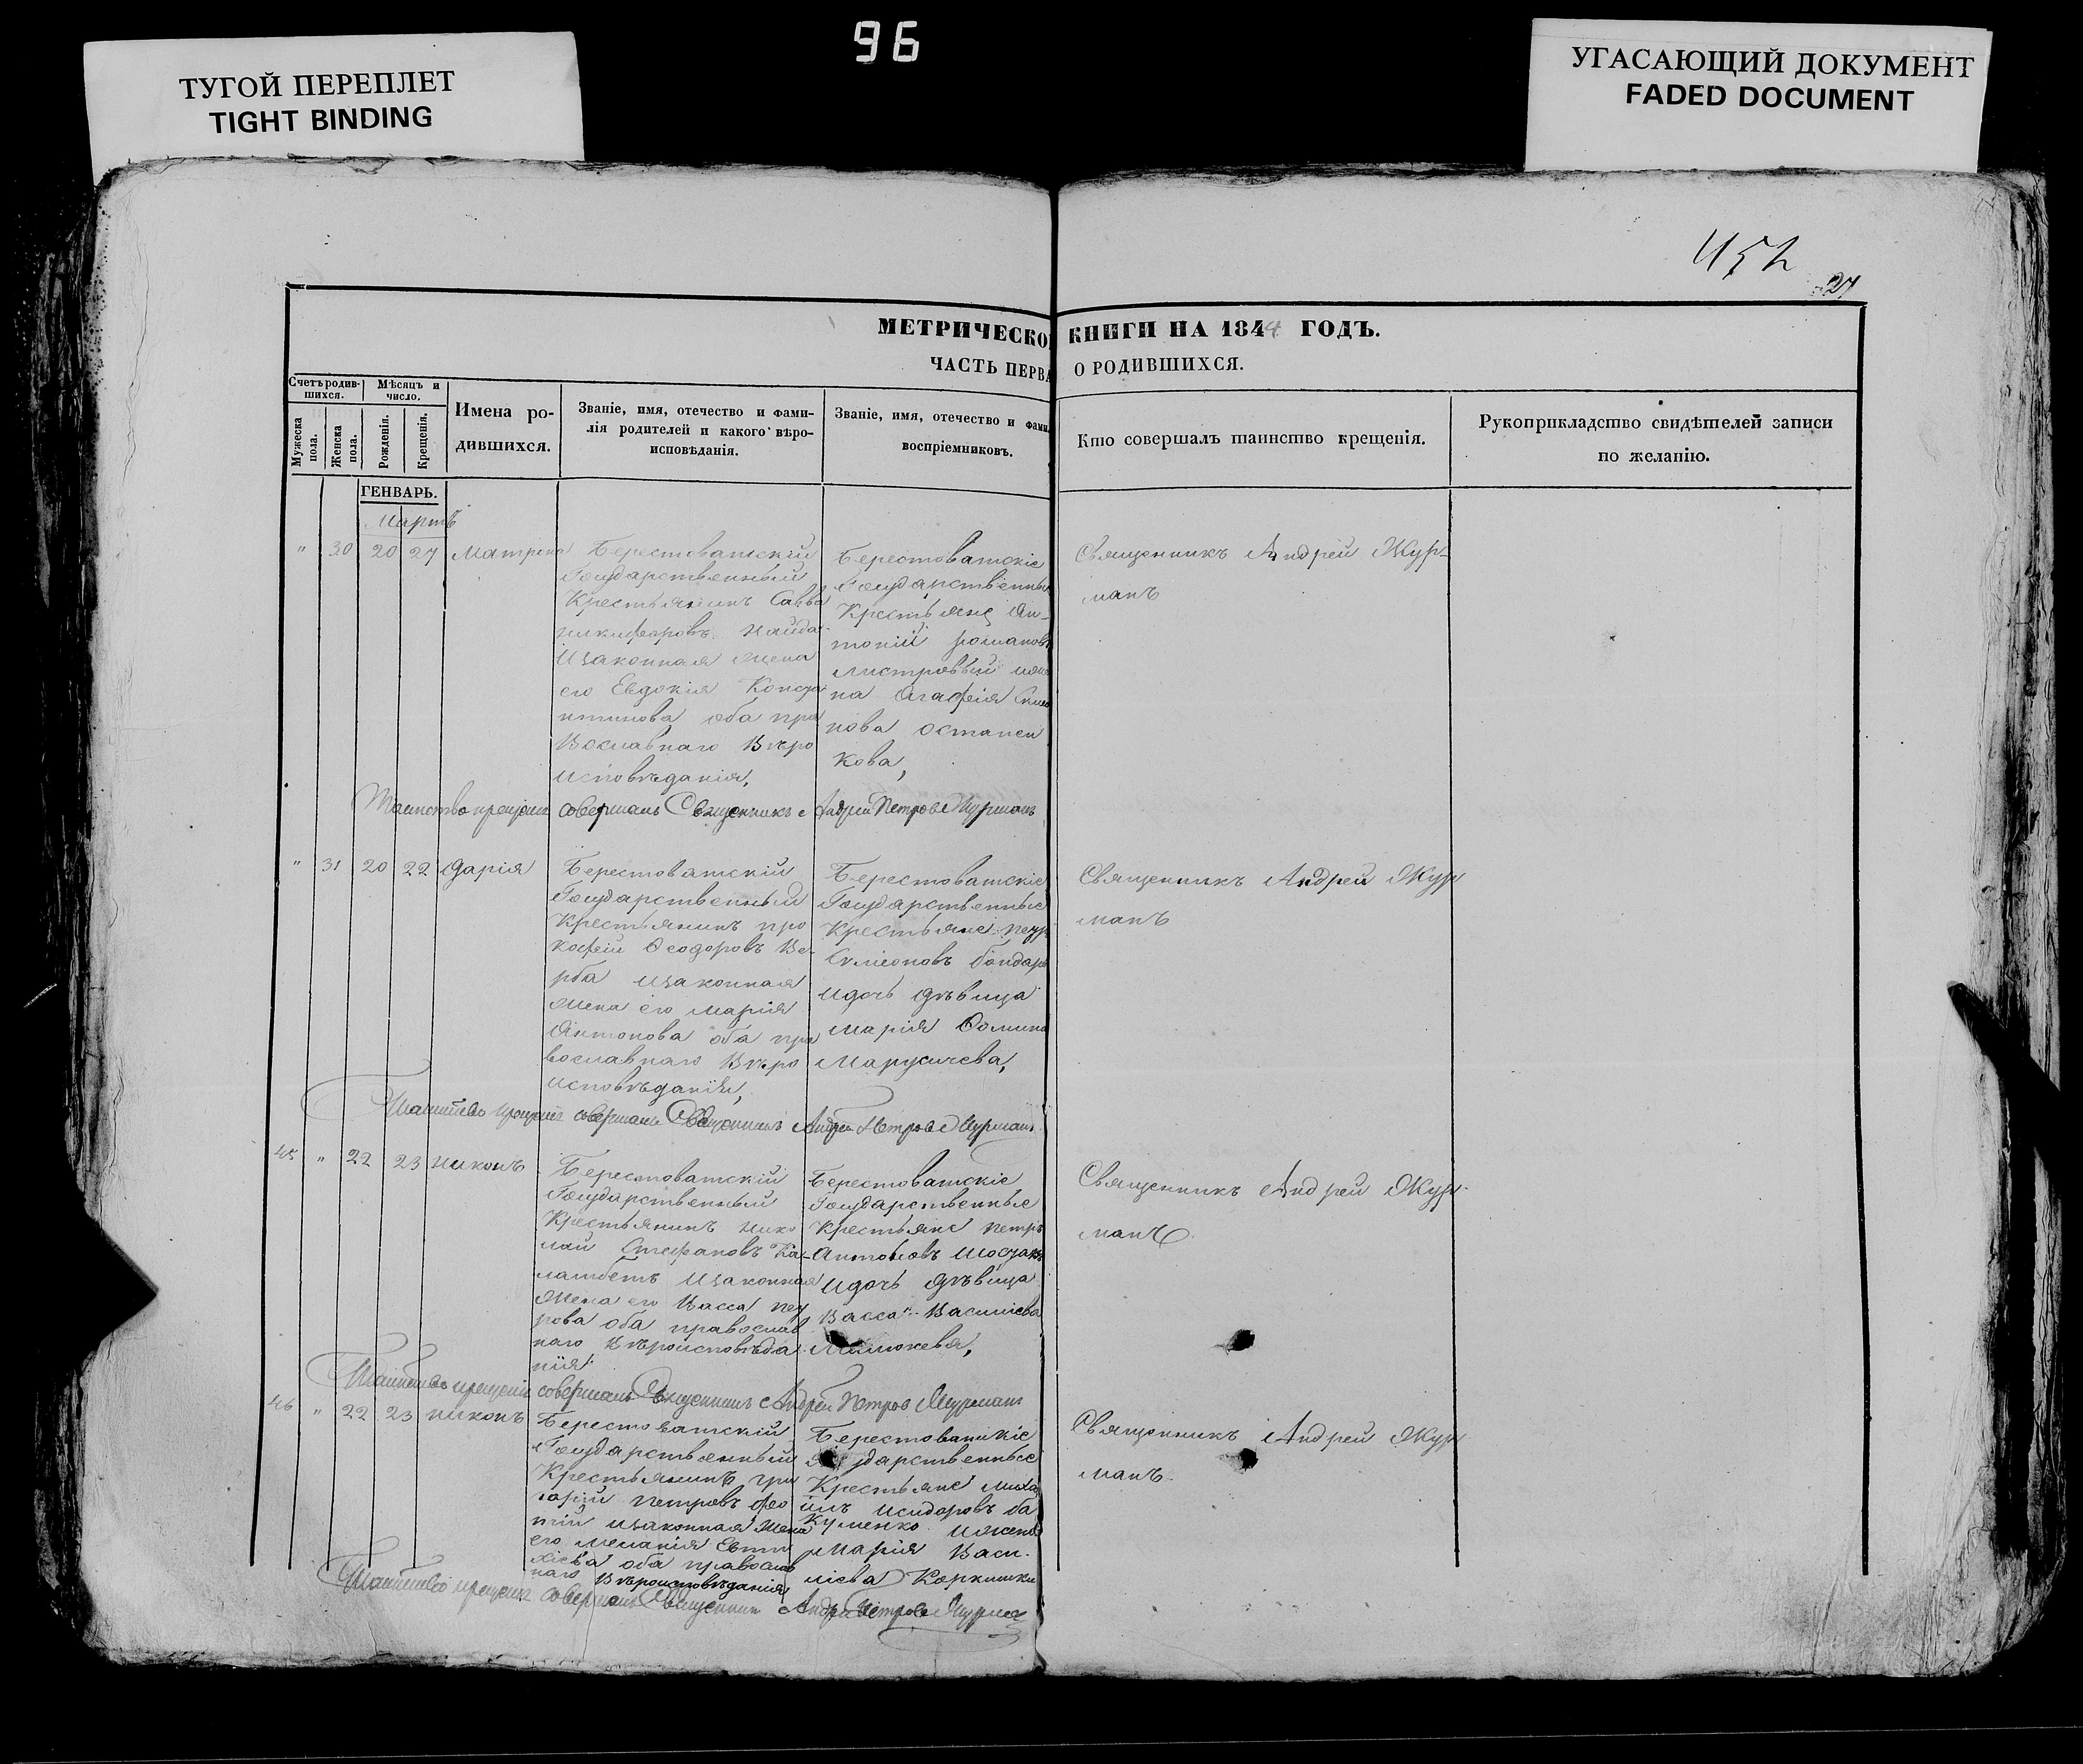 96
ТУГОЙ ПЕРЕПЛЕТ
TIGHT BINDING
УГАСАЮЩИЙ ДОКУМЕНТ
FADED DOCUMENT
452
27
МЕТРИЧЕСКО КНИГИ НА 1844 ГОДЪ.
ЧАСТЬ ПЕРВА О РОДИВШИХСЯ.
Счетъ родив-
шихся.
Мѣсяцъ и
число.
Мужеска
пола.
Женска
пола.
Рожденія.
Крещенія.
Имена ро-
дившихся.
Званіе, имя, отечество и фами-
лія родителей и какого вѣро-
исповѣданія.
Званіе, имя, отечество и фами
воспріемниковъ.
Кто совершалъ таинство крещенія.
Рукоприкладство свидѣтелей записи
по желанію.
ГЕНВАРЬ.
Мартъ
" 30 20 27 Матрона
Берестоватский
Государственный
Крестьянинъ Савва
Никифоровъ Найда
Изаконная жена
его Евдокія Конста
нтинова оба пра
вославнаго вѣро
исповѣданія,
Берестоватскіе
Государственные
Крестьяне Ан-
тоній романовъ
Агафія
нова остапен
кова,
Священникъ Андрей Жур-
манъ
Таинство крещенія совершалъ Священникъ Андрей Петровъ Журманъ
" 31 20 22 Дарія
Берестоватскій
Государственный
Крестьянинъ про
кофій Ѳеодоровъ Ве-
рба изаконная
жена его марія
Антонова оба пра
вославнаго вѣро
исповѣданія,
Берестоватскіе
Государственные
Крестьяне петр
Симеоновъ бондарь
идочь дѣвица
марія Ѳомина
Марусичева,
Священникъ Андрей Жур
манъ
Таинство крещенія совершалъ Священникъ Андрей Петровъ Журманъ
45 " 22 23 никонъ
Берестоватскій
Государственный
Крестьянинъ нико
лай Стефановъ Ка-
латбетъ изаконная
жена его Васса пет
рова оба православ
наго вѣроисповѣда
нія
Берестоватскіе
Государственные
Крестьяне петръ
Антоновъ
идочь дѣвица
Васса Василіева
Священникъ Андрей Жур-
манъ
Таинство крещенія совершалъ Священникъ Андрей Петровъ Журманъ
46 " 22 23 никонъ
Берестоватскій
Государственный
Крестьянинъ гри
горій петровъ
изаконная жена
его меланія Евти
хіева оба православ
наго вѣроисповѣданія
Берестоватскіе
Государственные
Крестьяне миха
илъ исидоровъ ба
куменко ижена
Марія Васи-
ліева
Священникъ Андрей Жур
манъ
Таинство крещенія совершалъ Священникъ Андрей Петровъ Журманъ